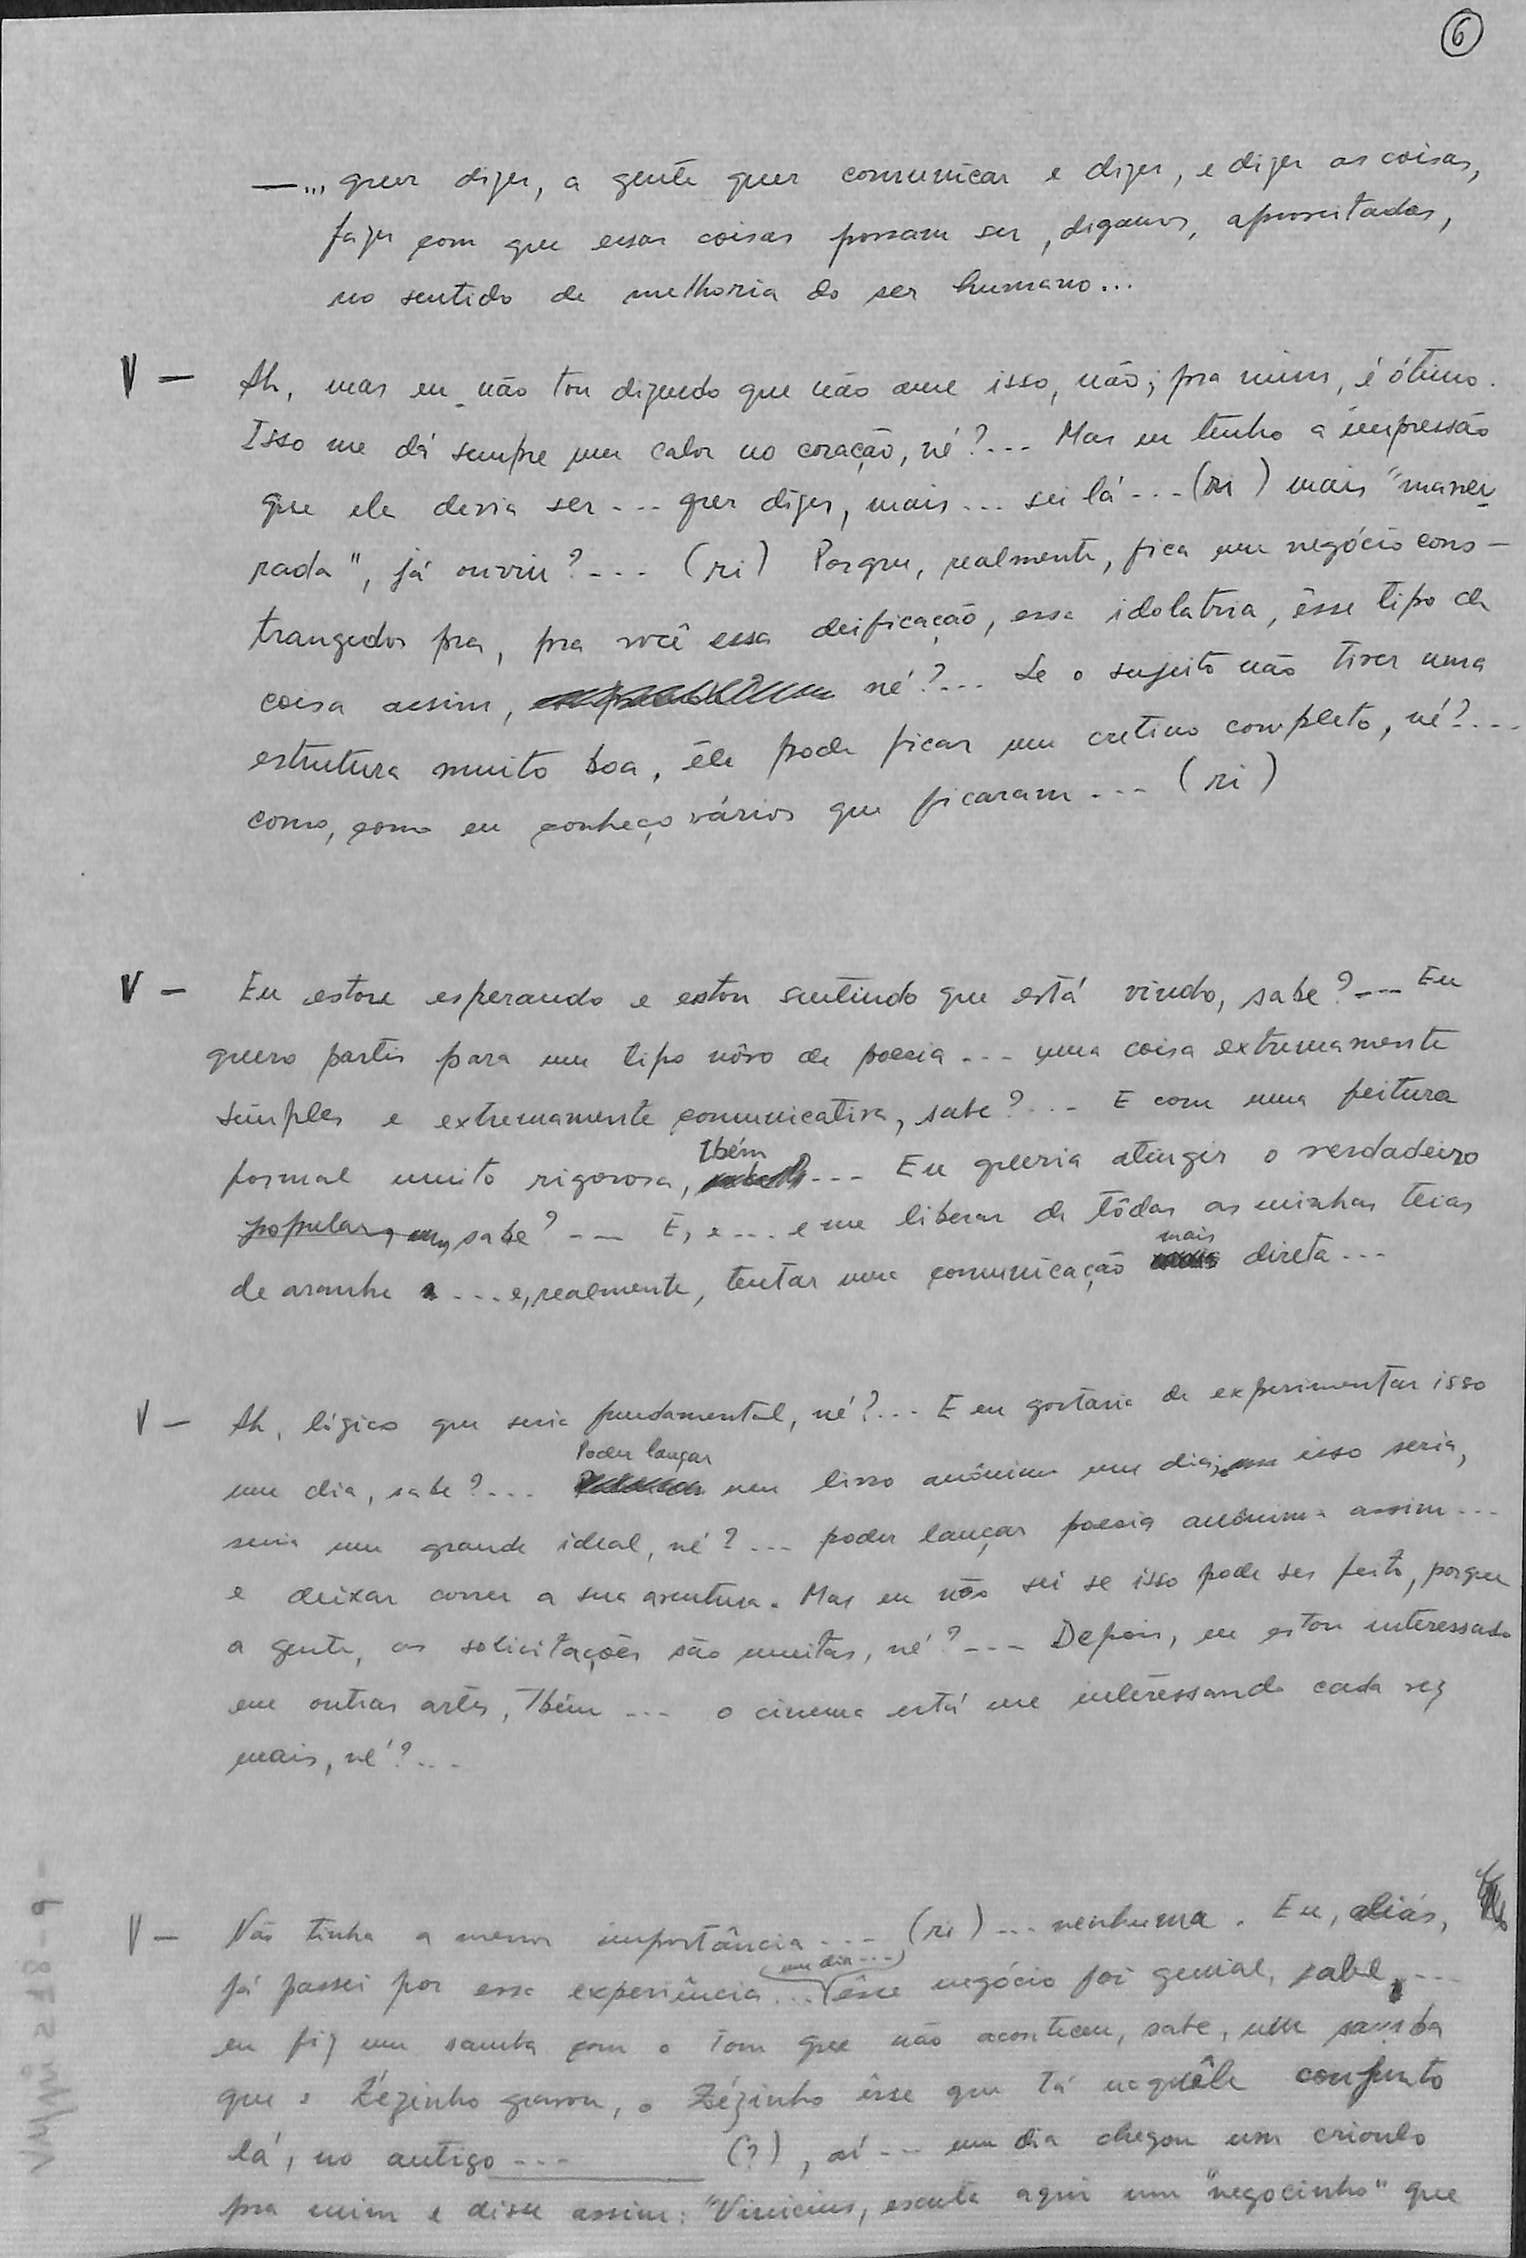 6
—... quer dizer, a gente quer comunicar e dizer, e dizer as coisas,
fazer com que essas coisas possam ser, digamos, aproveitadas,
no sentido de melhoria do ser humano...
V — Ah, mas eu não tou dizendo que não ame isso, não; pra mim, é ótimo.
Isso me dá sempre um calor no coração, né?... Mas eu tenho a impressão
que ela devia ser... quer dizer, mais... sei lá... (ri) mais "manei-
rada", já ouviu?... (ri) Porque, realmente, fica um negócio cons-
trangedor pra, pra você essa deificação, essa idolatria, êsse tipo de
coisa assim, né?... Se o sujeito não tiver uma
estrutura muito boa, êle pode ficar um cretino completo, né?...
como, como eu conheço vários que ficaram... (ri)
V — Eu estou esperando e estou sentindo que está vindo, sabe?... Eu
quero partir para um tipo nôvo de poesia... uma coisa extremamente
simples e extremamente comunicativa, sabe?... E com uma feitura
formal muito rigorosa, tbém... Eu queria atingir o verdadeiro
popular, sabe?... E, e... e me liberar de tôdas as minhas teias
de aranha... e, realmente, tentar uma comunicação mais direta...
V — Ah, lógico que seria fundamental, né?... E eu gostaria de experimentar isso
um dia, sabe?... Poder lançar um livro anônimo um dia, isso seria,
seria um grande ideal, né?... poder lançar poesia anônima assim...
e deixar correr a sua aventura. Mas eu não sei se isso pode ser feito, porque
a gente, as solicitações são muitas, né?... Depois, eu estou interessado
em outras artes, tbém... o cinema está me interessando cada vez
mais, né?...
V — Não tinha a menor importância... (ri)... nenhuma. Eu, aliás,
já passei por essa experiência... um dia... êsse negócio foi genial, sabe,...
eu fiz um samba com o Tom que não aconteceu, sabe, um samba
que o Zézinho gravou, o Zézinho êsse que tá naquêle conjunto
lá, no antigo... (?), aí... um dia chegou um crioulo
pra mim e disse assim: "Vinicius, escuta aqui um "negocinho" que